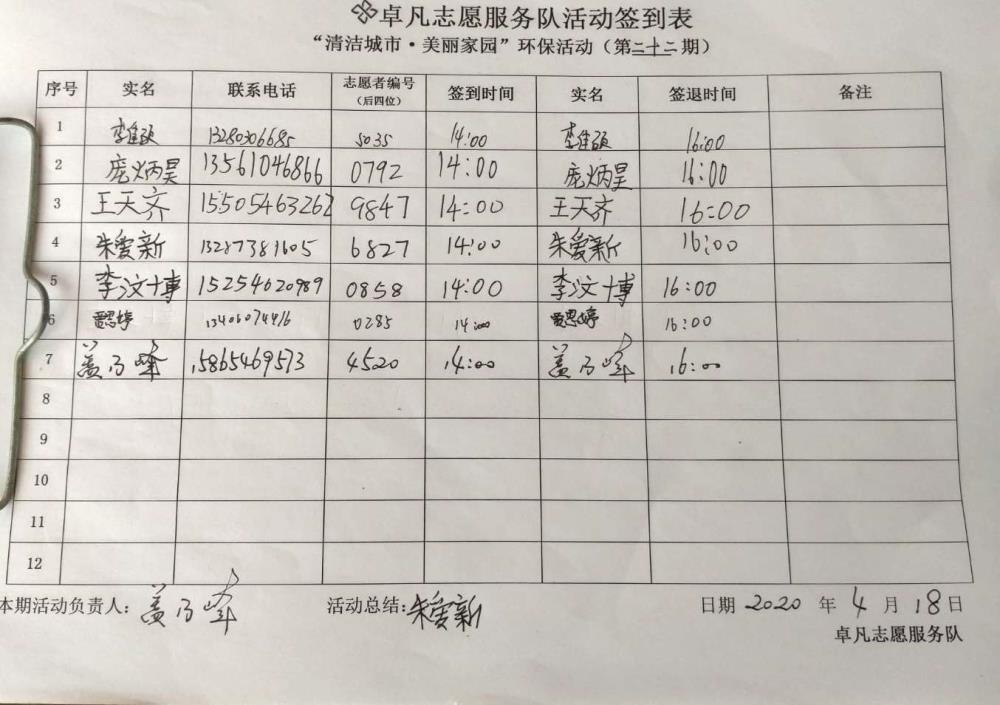 卓凡志愿服务队活动签到表
“清洁城市·美丽家园”环保活动（第二十二期）
序号 实名 联系电话 志愿者编号（后四位） 签到时间 实名 签退时间 备注
1 13280306685 5035 14:00 16:00
2 庞炳昊 13561046866 0792 14:00 庞炳昊 16:00
3 王天齐 15505463262 9847 14:00 王天齐 16:00
4 朱爱新 13287381605 6827 14:00 朱爱新 16:00
5 李汶博 15254620989 0858 14:00 李汶博 16:00
6 贾思婷 13406074416 0285 14:00 贾思婷 16:00
7 盖乃峰 15865469573 4520 14:00 盖乃峰 16:00
8
9
10
11
12
本期活动负责人：盖乃峰 活动总结：朱爱新 日期 2020 年 4 月 18 日
卓凡志愿服务队